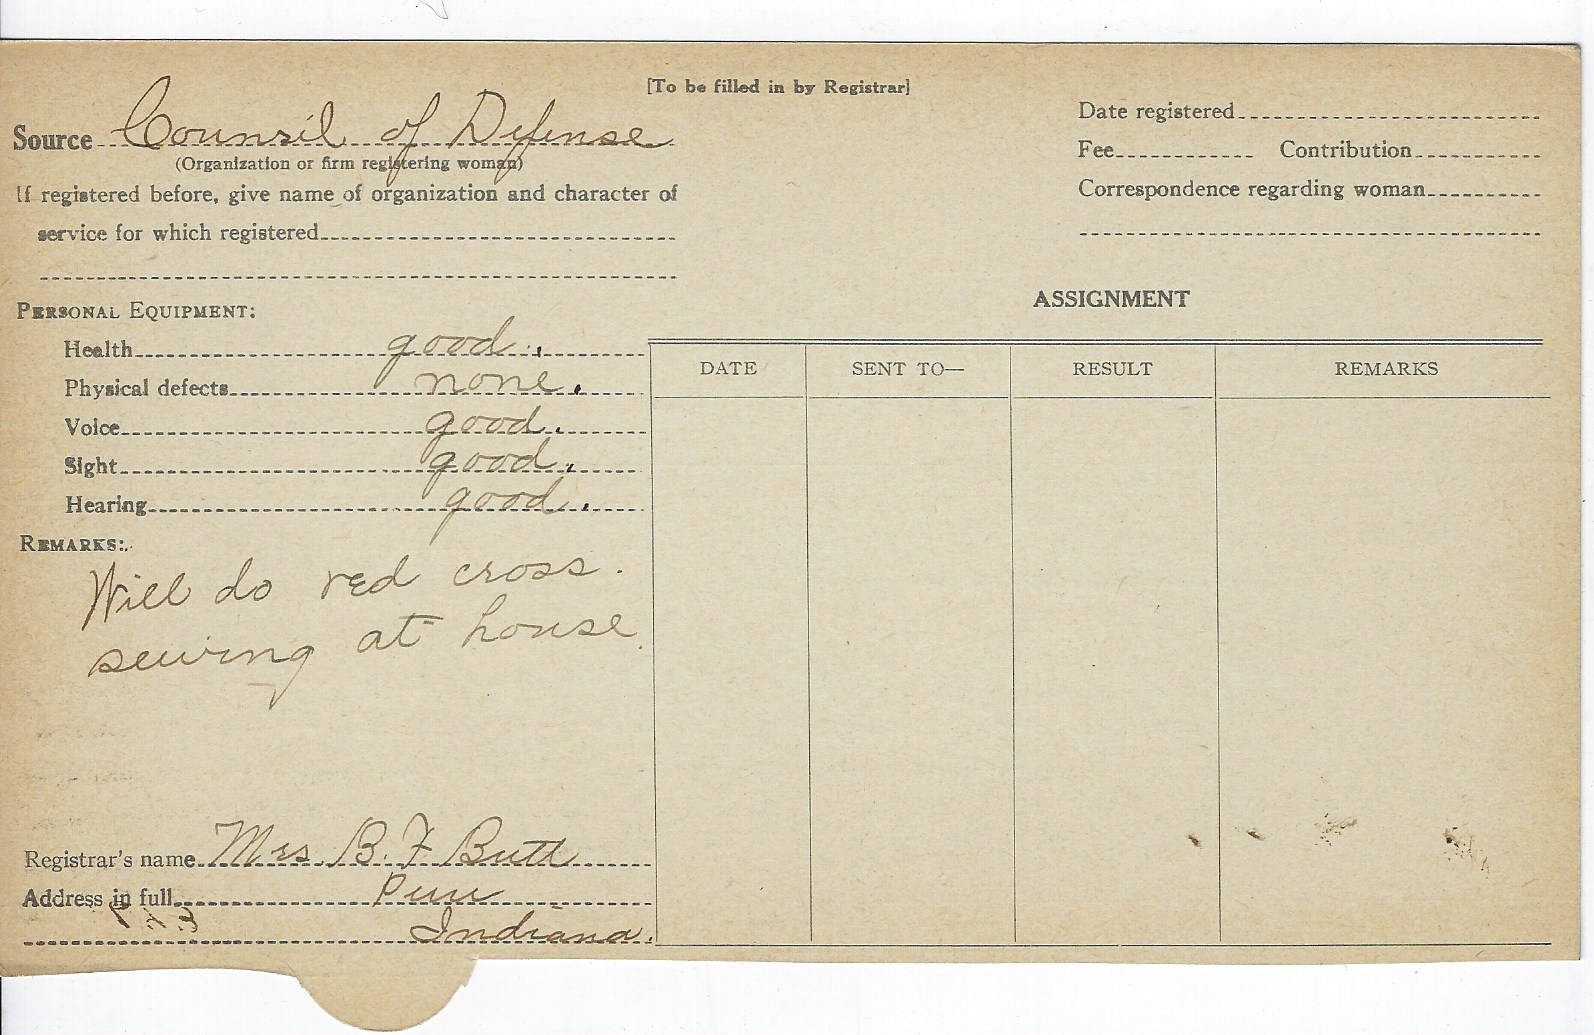 [To be filled in by Registrar]
Source Counsil of Defense
(Organization or firm registering woman)
If registered before, give name of organization and character of
service for which registered
Date registered
Fee Contribution
Correspondence regarding woman
PERSONAL EQUIPMENT:
Health good.
Physical defects none.
Voice good.
Sight good.
Hearing good.
REMARKS:
Will do red cross.
sewing at house.
ASSIGNMENT
DATE SENT TO— RESULT REMARKS
Registrar's name Mrs B. F Butt
Address in full Peru
Indiana.